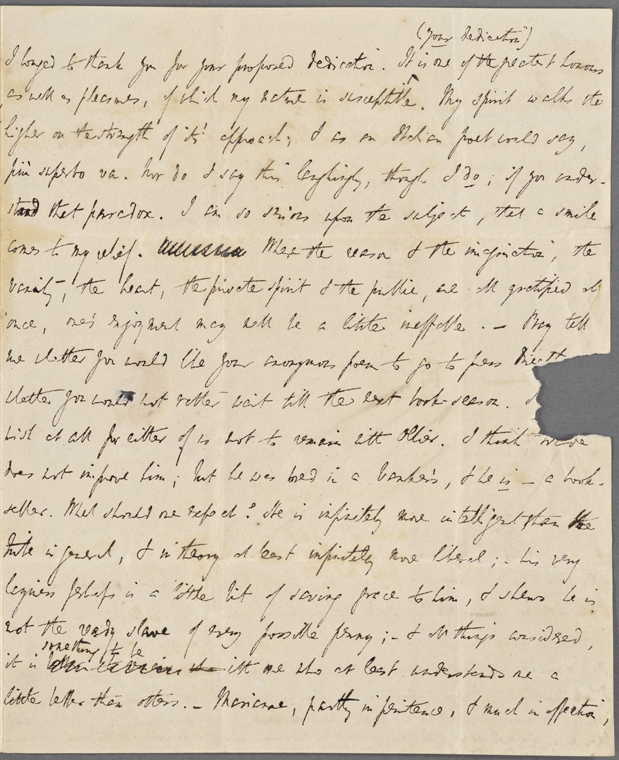 (your dedication)
I longed to thank you for your proposed dedication. It is one of the greatest honours
as well as pleasures, of which my nature is susceptible. My spirit walks the
higher on the strength of its' approach; & as an Italian poet would say,
più superbo va. Nor do I say this laughingly, though I do; if you under-
stand that paradox. I am so serious upon the subject, that a smile
comes to my relief. When the reason & the imagination, the
vanity, the heart, the private spirit & the public, are all gratified at
once, one's enjoyment may well be a little ineffable. — Pray tell
me whether you would like your anonymous poem to go to press
whether you would not rather wait till the next book-season.
wish at all for either of us not to remain with Ollier. I think
does not improve him; but he was bred in a banker's, & he is — a book-
seller. What should one expect? He is infinitely more intelligent than the
trade in general, & in theory at least infinitely more liberal; – his very
laziness perhaps is a little bit of saving grace to him, & shews he is
not the very slave of every possible penny; – & all things considered,
it is something to be with one who at least understands one a
little better than others. — Marianne, partly in penitence, & much in affection,